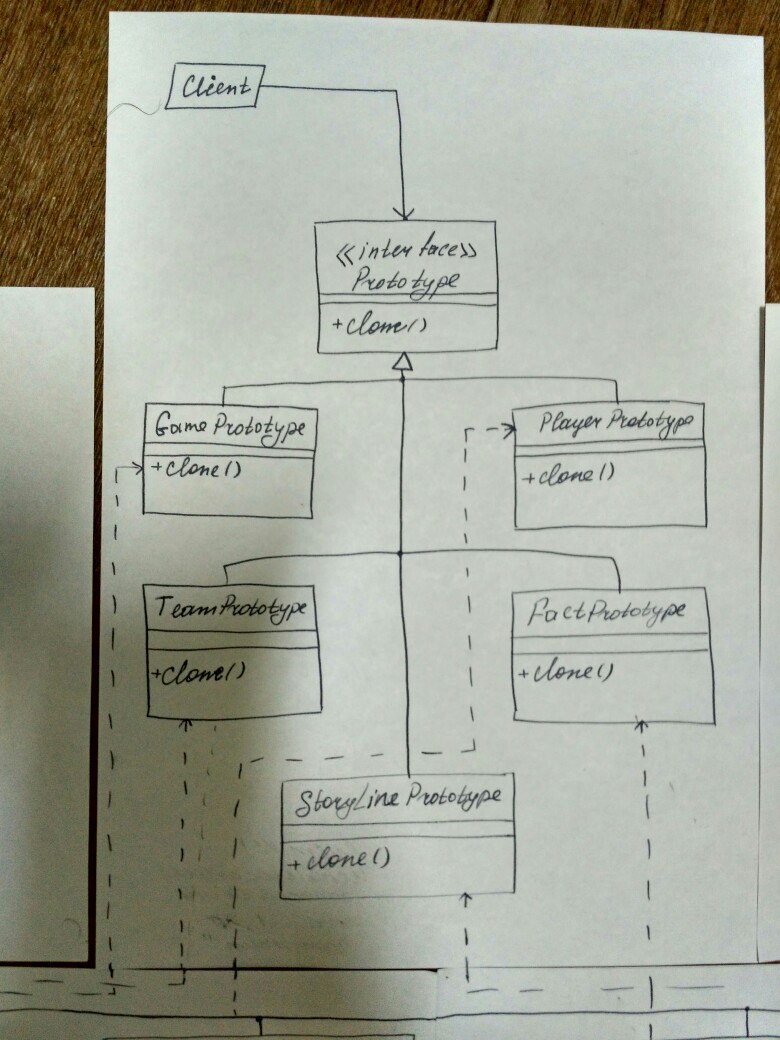 Client
<<interface>>
Prototype
+clone()
GamePrototype
+clone()
PlayerPrototype
+clone()
TeamPrototype
+clone()
FactPrototype
+clone()
StoryLinePrototype
+clone()